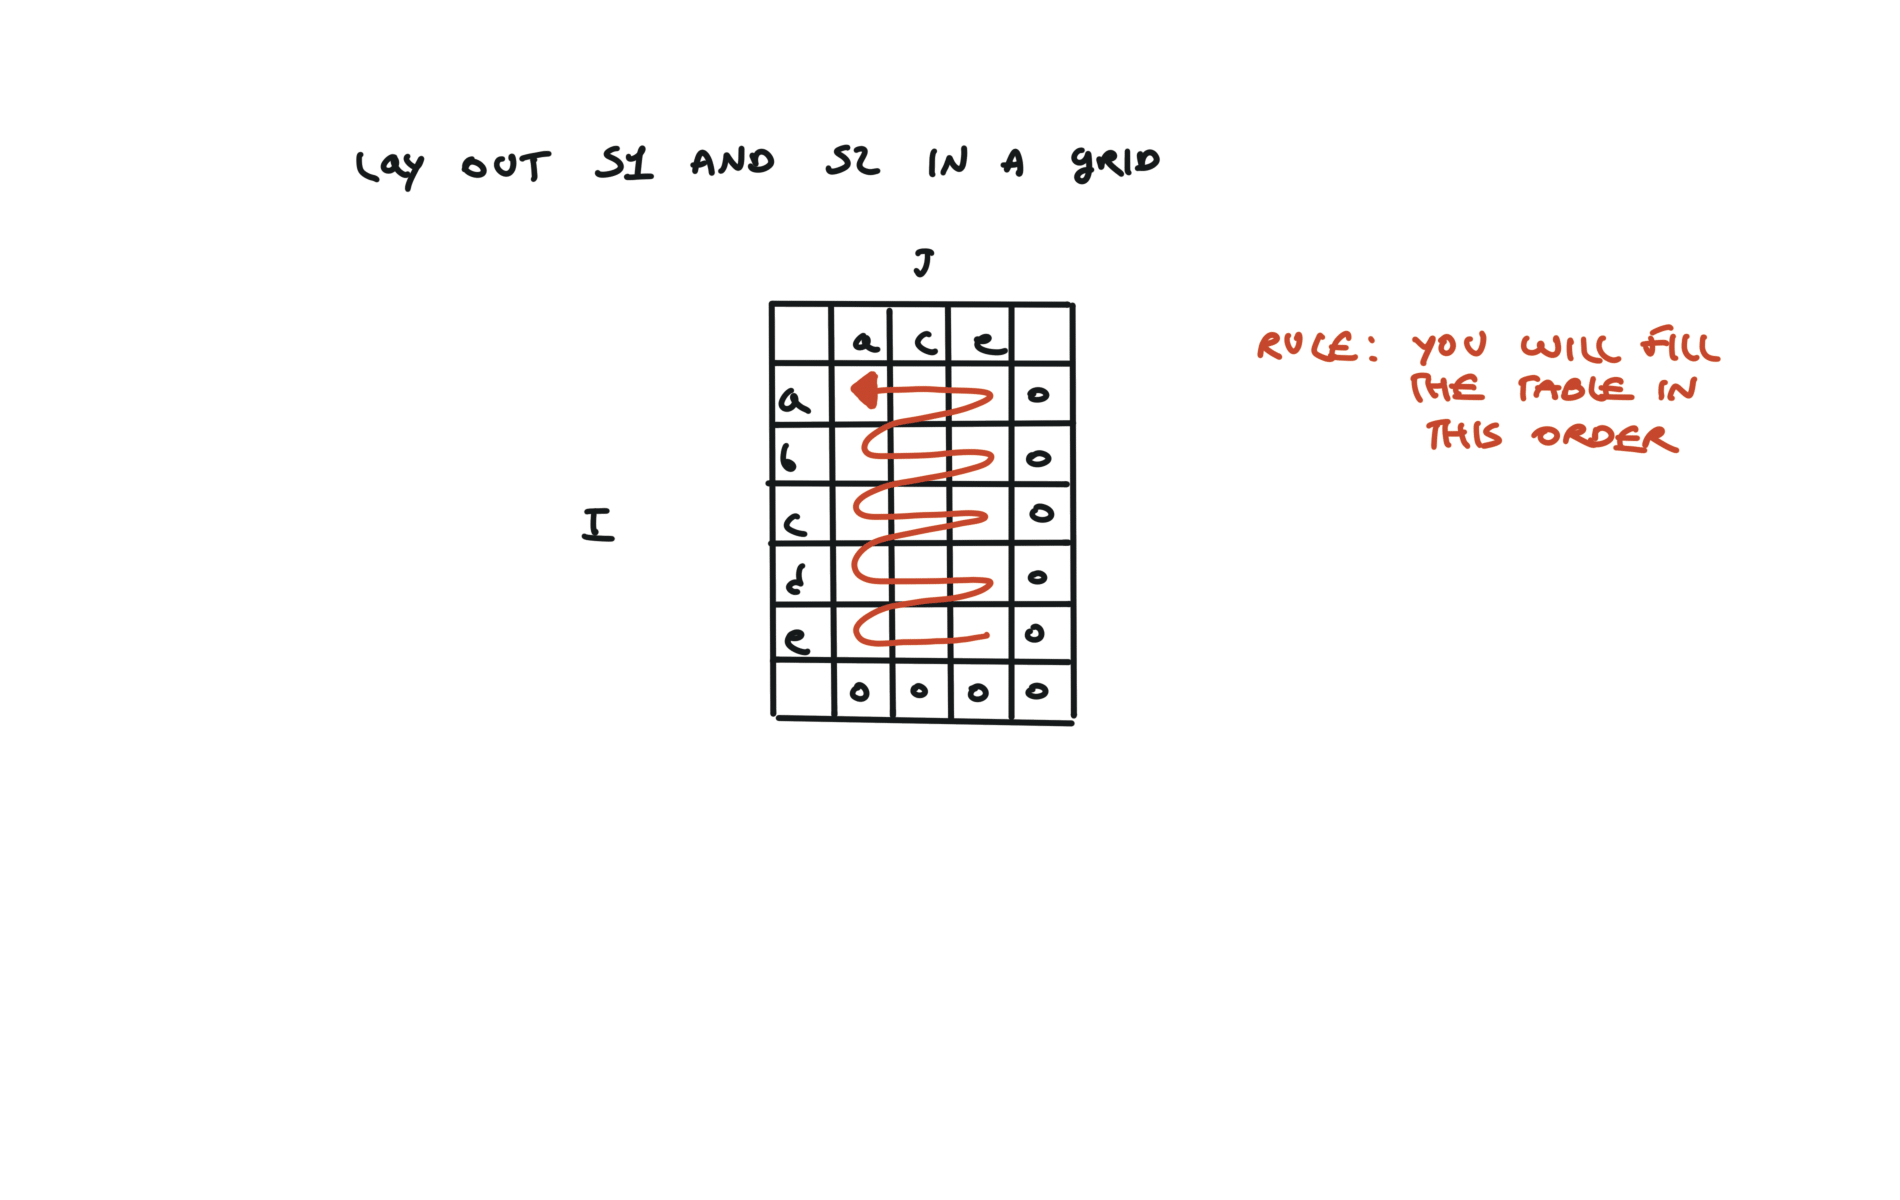 Lay OUT S1 AND S2 IN A gRID
J
a c e
a 0
b 0
I
c 0
d 0
e 0
0 0 0 0
RULE: YOU WILL FILL
THE TABLE IN
THIS ORDER